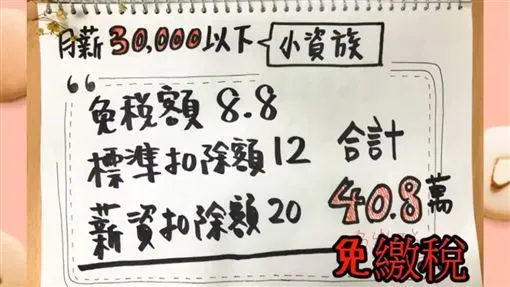 月薪30,000以下 小資族
免税額 8.8
標準扣除額12 合計
薪資扣除額20 40.8萬
免繳稅